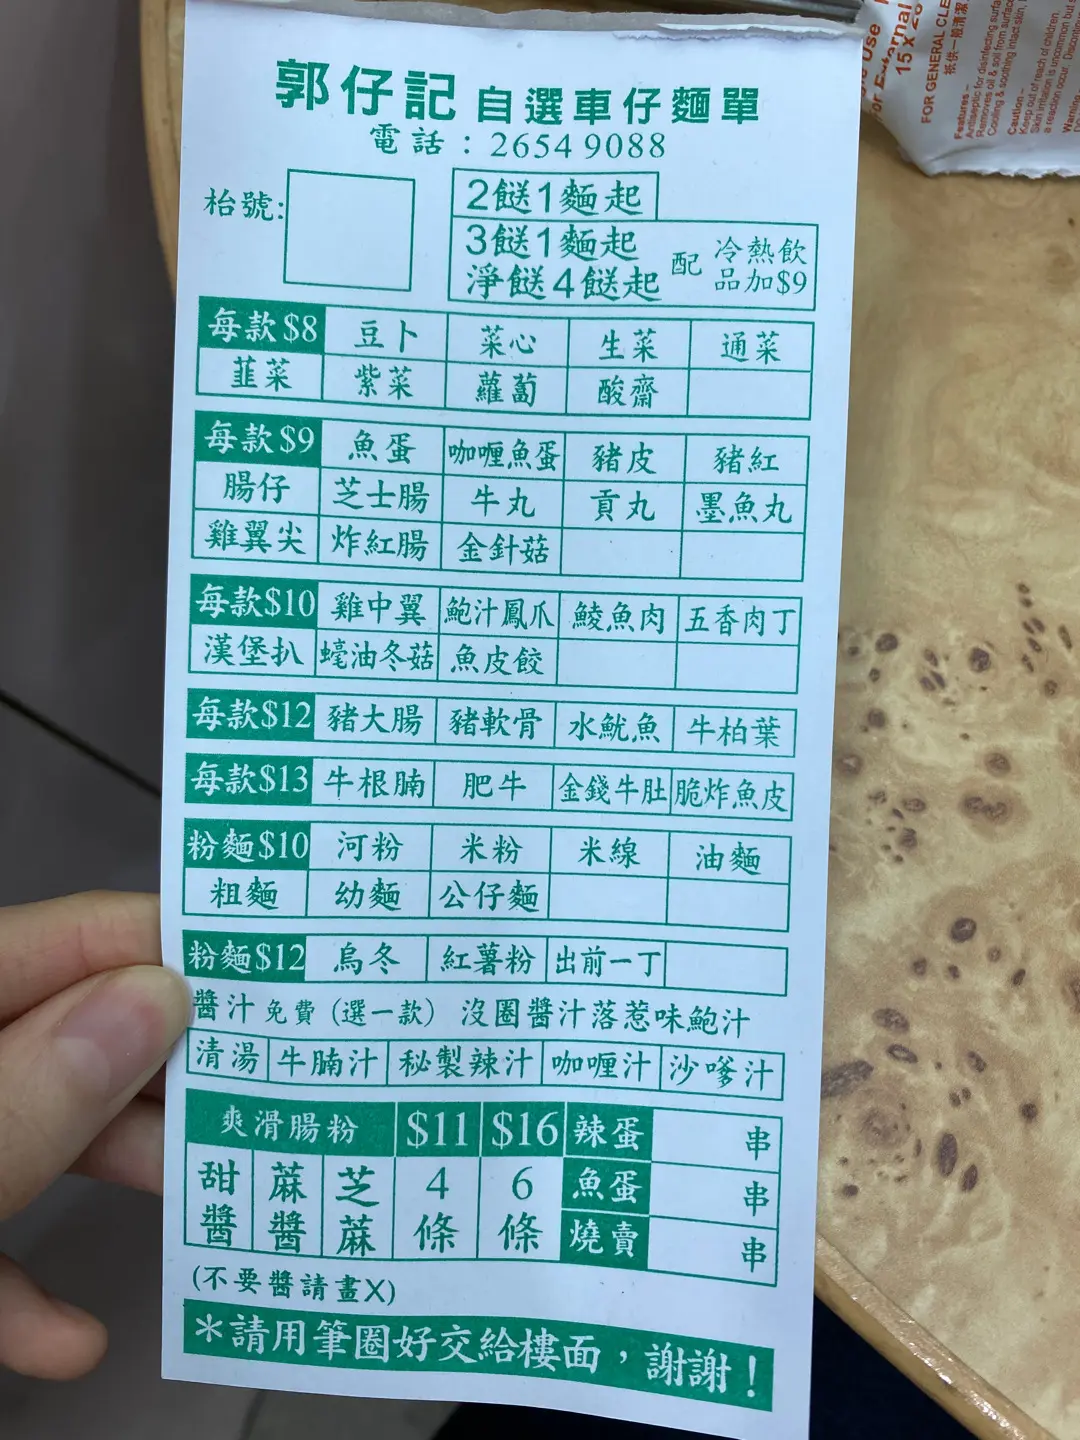 郭仔記 自選車仔麵單
電話：2654 9088
枱號:
2餸1麵起
3餸1麵起
淨餸4餸起
配 冷熱飲品加$9
每款$8 豆卜 菜心 生菜 通菜
韮菜 紫菜 蘿蔔 酸齋
每款$9 魚蛋 咖喱魚蛋 豬皮 豬紅
腸仔 芝士腸 牛丸 貢丸 墨魚丸
雞翼尖 炸紅腸 金針菇
每款$10 雞中翼 鮑汁鳳爪 鯪魚肉 五香肉丁
漢堡扒 蠔油冬菇 魚皮餃
每款$12 豬大腸 豬軟骨 水魷魚 牛柏葉
每款$13 牛根腩 肥牛 金錢牛肚 脆炸魚皮
粉麵$10 河粉 米粉 米線 油麵
粗麵 幼麵 公仔麵
粉麵$12 烏冬 紅薯粉 出前一丁
醬汁 免費 (選一款) 沒圈醬汁落惹味鮑汁
清湯 牛腩汁 秘製辣汁 咖喱汁 沙嗲汁
爽滑腸粉 $11 $16 辣蛋 串
甜醬 蔴醬 芝蔴 4條 6條 魚蛋 串
燒賣 串
(不要醬請畫X)
＊請用筆圈好交給樓面，謝謝！
Use
For External
15 x 20
FOR GENERAL CLE
祇供一般清潔
Features -
Antiseptic for disinfecting surfa
Removes oil & soil from surface
Cooling & soothing intact skin.
Caution -
Keep out of reach of children.
Skin irritation is uncommon but s
a reaction occur. Discontin
Warning